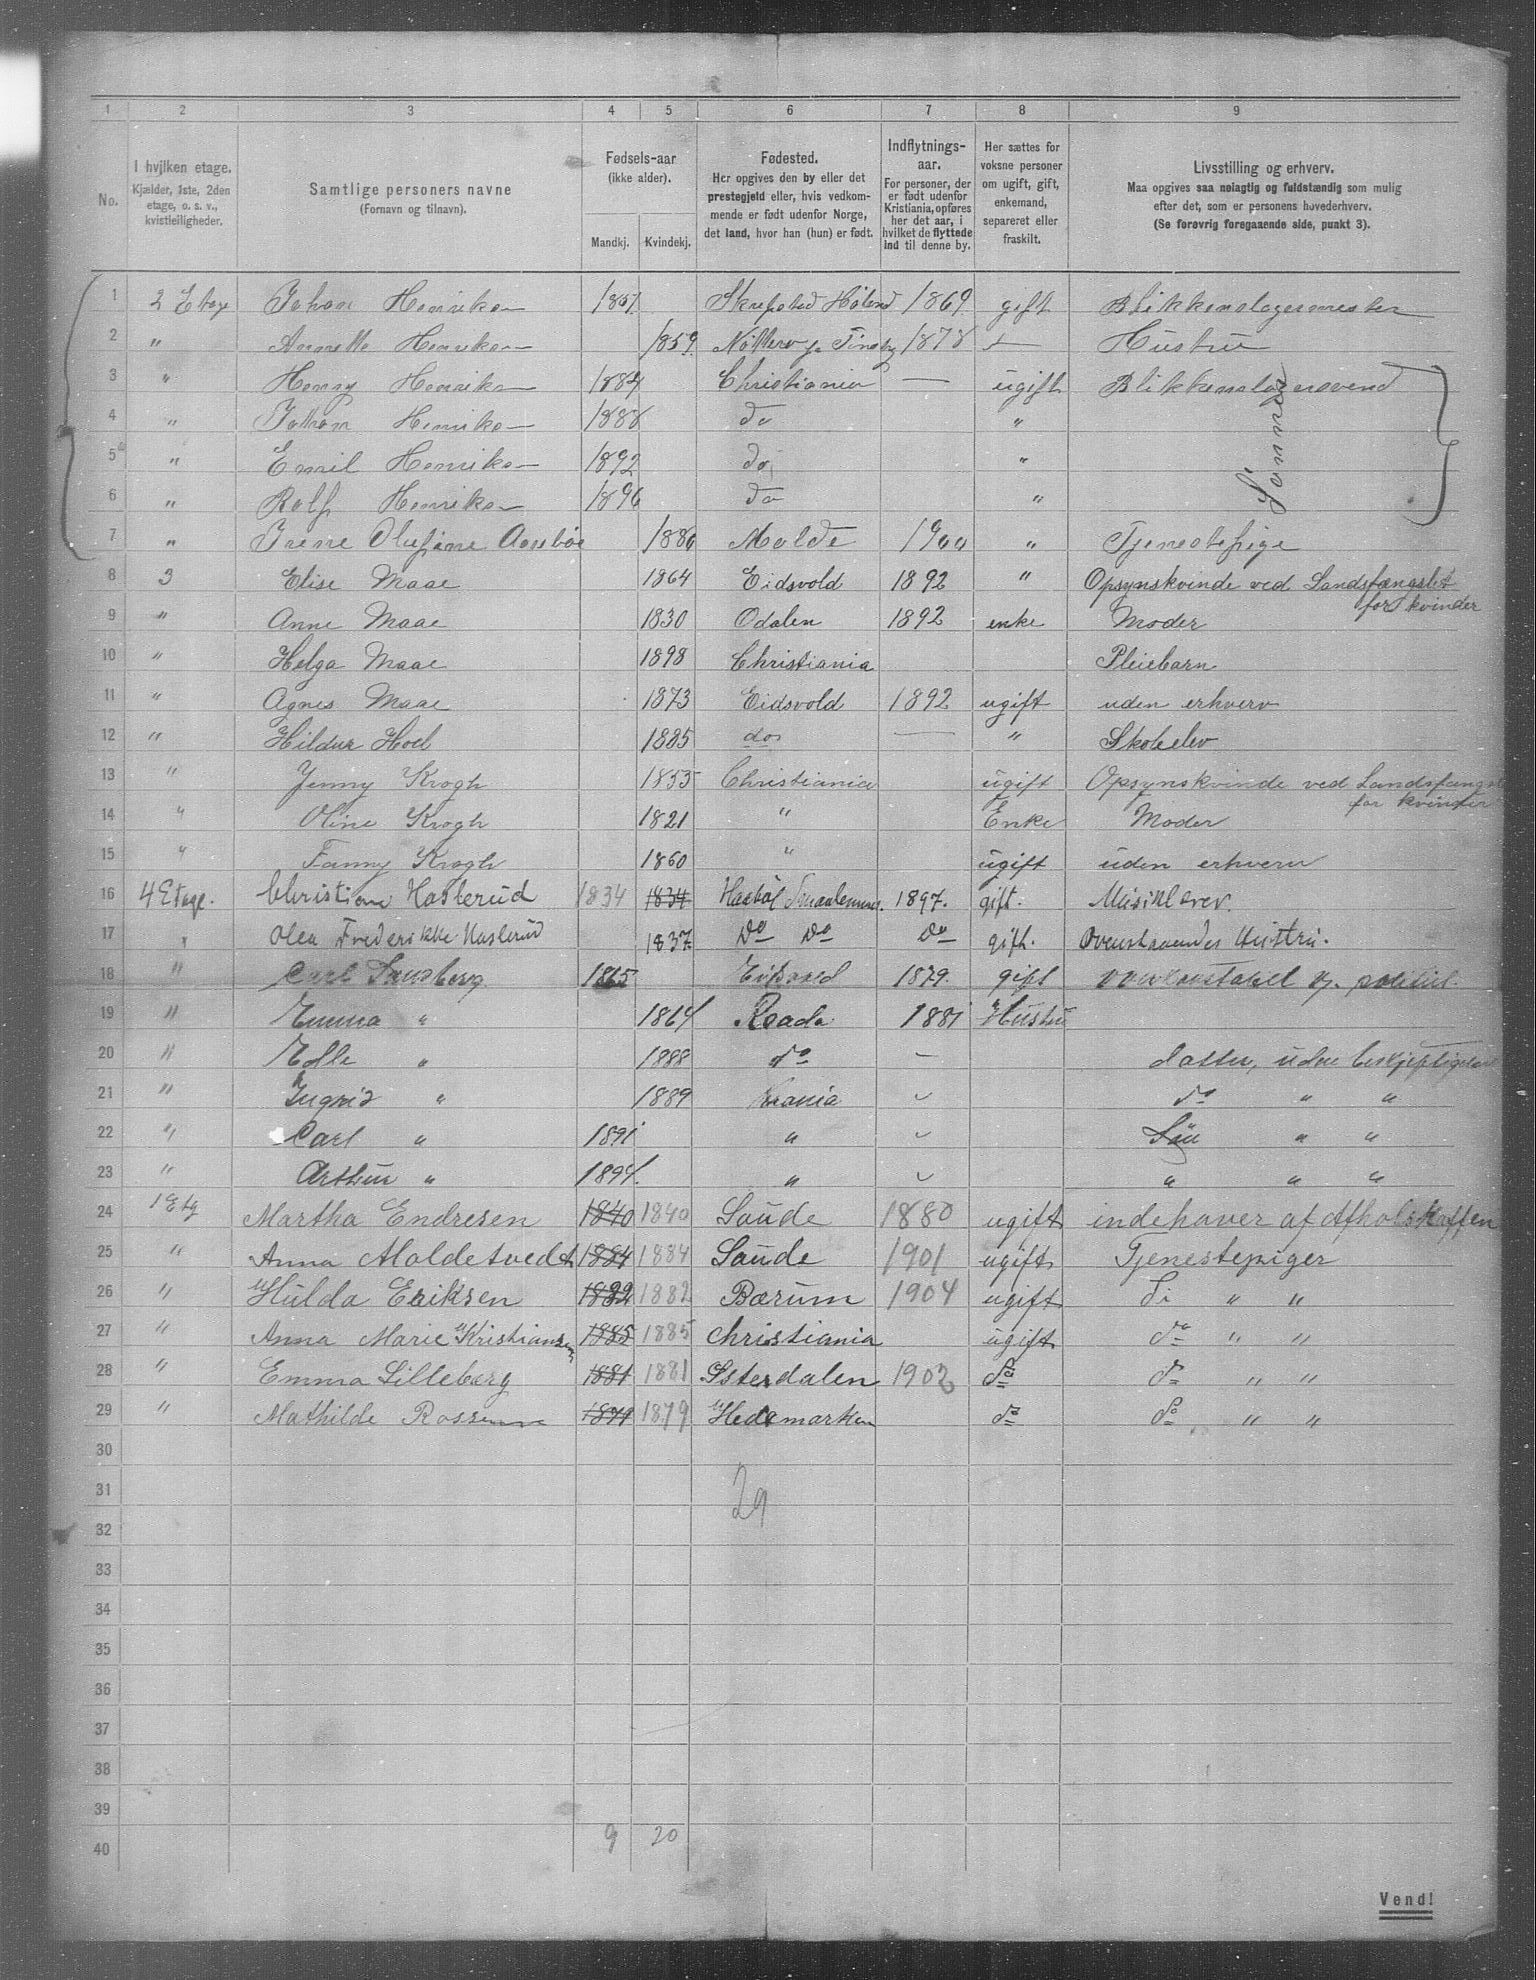 1 2 3 4 5 6 7 8 9
No.
I hvilken etage.
Kjælder, 1ste, 2den
etage, o. s. v.,
kvistleiligheder.
Samtlige personers navne
(Fornavn og tilnavn).
Fødsels-aar
(ikke alder).
Mandkj. Kvindekj.
Fødested.
Her opgives den by eller det
prestegjeld eller, hvis vedkom-
mende er født udenfor Norge,
det land, hvor han (hun) er født.
Indflytnings-
aar.
For personer, der
er født udenfor
Kristiania, opføres
her det aar, i
hvilket de flyttede
ind til denne by.
Her sættes for
voksne personer
om ugift, gift,
enkemand,
separeret eller
fraskilt.
Livsstilling og erhverv.
Maa opgives saa nøiagtig og fuldstændig som mulig
efter det, som er personens hovederhverv.
(Se forøvrig foregaaende side, punkt 3).
1 2 Etag Johan Henriksen Høland 1869 gift Blikkenslagermester
2 " Annette Henriksen 1859 Nøtterø 1878 Hustru
3 " Henny Henriksen 1884 Christiania — ugift Blikkenslagersvend
4 " Johan Henriksen 1888 do "
5 " Emil Henriksen 1892 do "
6 " Rolf Henriksen 1896 do "
Sønner
7 " Irene Olufine 1880 Molde 1900 " Tjenestepige
8 3 Elise Maae 1864 Eidsvold 1892 " Opsynskvinde ved Landsfængslet
for kvinder
9 " Anne Maae 1830 Odalen 1892 enke Moder
10 " Helga Maae 1898 Christiania Pleiebarn
11 " Agnes Maae 1873 Eidsvold 1892 ugift uden erhverv
12 " Hildur Hoel 1885 do — " Skoleelev
13 " Jenny Krogh 1855 Christiania ugift Opsynskvinde ved Landsfængsl
for kvinder
14 " Oline Krogh 1821 " Enke Moder
15 " Fanny Krogh 1860 " ugift uden erhverv
16 4 Etage. Christian Haslerud 1834 1834 Smaalenene. 1897. gift. Musiklærer.
17 " Olea Frederikke Haslerud 1837. Do Do Do gift. Ovenstaaendes Hustru.
18 " Carl 1865 1879. gift
19 " Emma " 1864 Roada 1881 Hustru
20 " " 1888 do — datter, uden beskjeftigelse
21 " Ingrid " 1889 Krania do " "
22 " Carl " 1891 " Søn " "
23 " Arthur " 1894. " " " "
24 1 Etg Martha Endresen 1840 1840 Saude 1880 ugift indehaver af Afholdskaffen
25 " Anna Moldetvedt 1884 1884 Saude 1901 ugift Tjenestepiger
26 " Hulda Eriksen 1882 1882 Bærum 1904 ugift Di " "
27 " Anna Marie Kristiansen 1885 1885 Christiania ugift do " "
28 " Emma Lilleberg 1881 1881 Østerdalen 1902 do do " "
29 " Mathilde 1879 1879 Hedemarken do do " "
30
31
29
32
33
34
35
36
37
38
39
40 9 20
Vend!